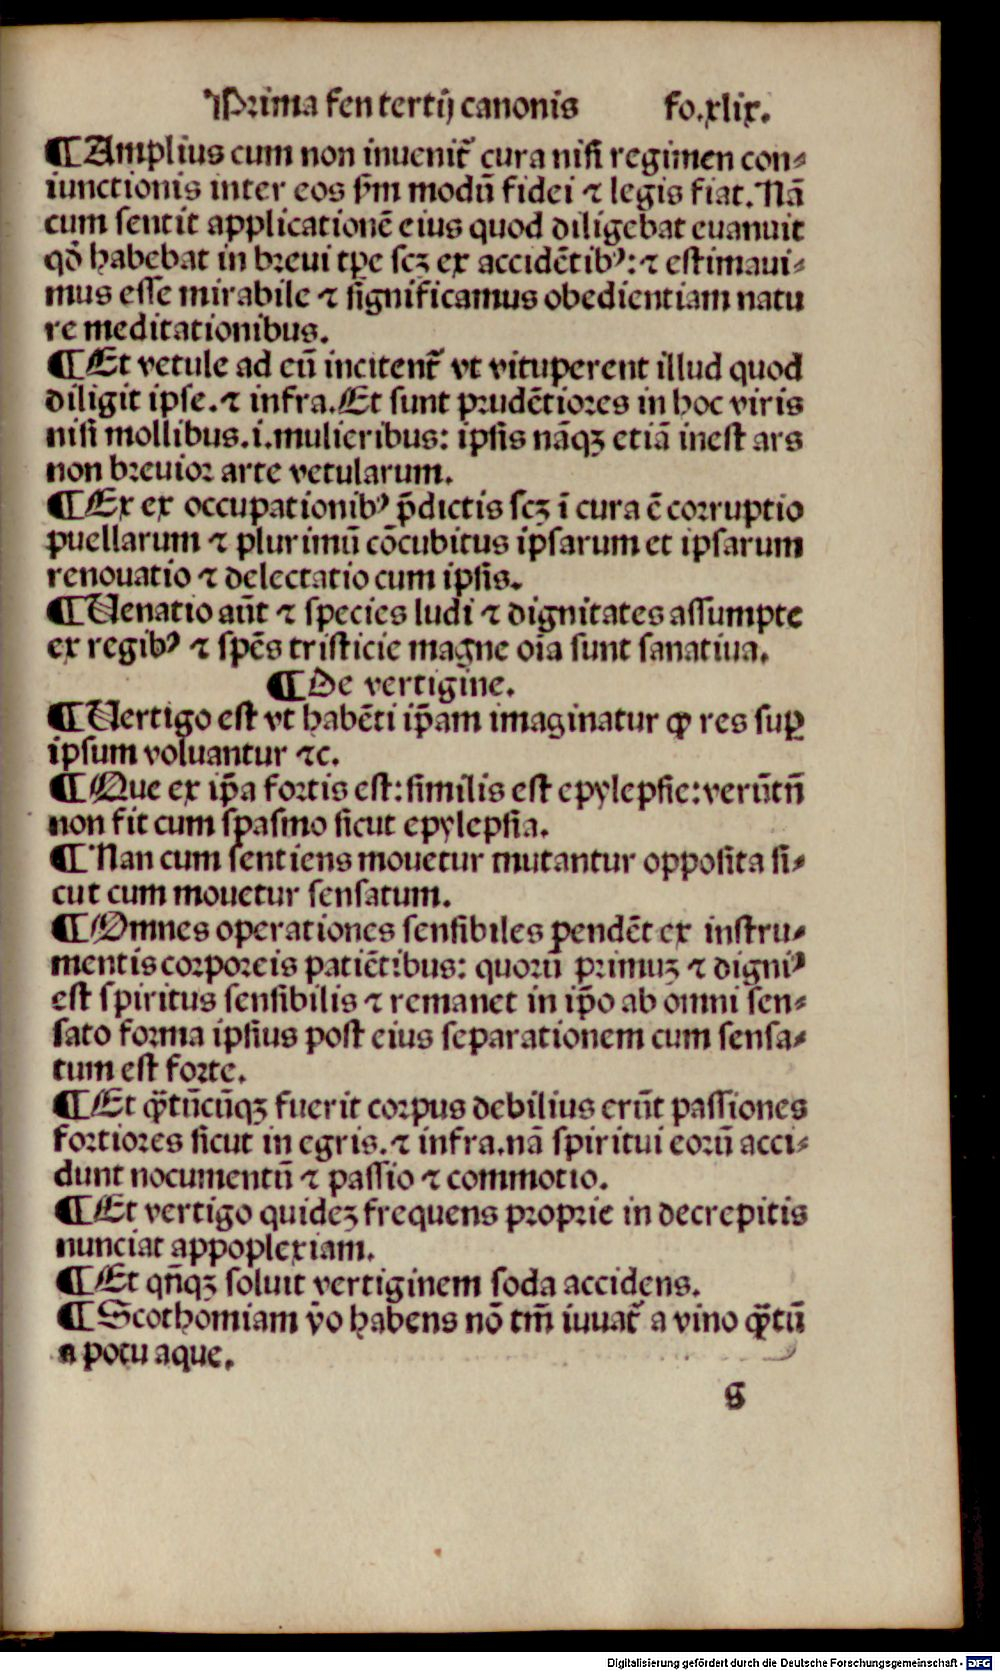 Prima fen tertij canonis fo.xlix.
¶Amplius cum non inuenit᷑ cura nisi regimen con⸗
iunctionis inter eos ẜm modū fidei ⁊ legis fiat. Nā
cum sentit applicationē eius quod diligebat euanuit
qđ habebat in breui tp̄e scꝫ ex accidētibꝰ: ⁊ estimaui⸗
mus esse mirabile ⁊ significamus obedientiam natu
re meditationibus.
¶Et vetule ad eū incitent᷑ vt vituperent illud quod
diligit ipse. ⁊ infra. Et sunt prudētiores in hoc viris
nisi mollibus. i. mulieribus: ipsis nāqꝫ etiā inest ars
non breuior arte vetularum.
¶Ex ex occupationibꝰ p̄dictis scꝫ ī cura ē corruptio
puellarum ⁊ plurimū cōcubitus ipsarum et ipsarum
renouatio ⁊ delectatio cum ipsis.
¶Uenatio aūt ⁊ species ludi ⁊ dignitates assumpte
ex regibꝰ ⁊ spēs tristicie magne oīa sunt sanatiua.
¶De vertigine.
¶Uertigo est vt habēti ip̄am imaginatur ꝙ res suꝑ
ipsum voluantur ⁊c.
¶Que ex ip̄a fortis est: similis est epylepsie: verūtn̄
non fit cum spasmo sicut epylepsia.
¶Nan cum sentiens mouetur mutantur opposita si⸗
cut cum mouetur sensatum.
¶Omnes operationes sensibiles pendēt ex instru⸗
mentis corporeis patiētibus: quorū primuꝫ ⁊ digniꝰ
est spiritus sensibilis ⁊ remanet in ip̄o ab omni sen⸗
sato forma ipsius post eius separationem cum sensa⸗
tum est forte.
¶Et qͣ̄tūcūqꝫ fuerit corpus debilius erūt passiones
fortiores sicut in egris. ⁊ infra. nā spiritui eorū acci⸗
dunt nocumentū ⁊ passio ⁊ commotio.
¶Et vertigo quideꝫ frequens proprie in decrepitis
nunciat appoplexiam.
¶Et qn̄qꝫ soluit vertiginem soda accidens.
¶Scothomiam v̄o habens nō tm̄ iuuat᷑ a vino qͣ̄tū
a potu aque.
g
Digitalisierung gefördert durch die Deutsche Forschungsgemeinschaft - DFG